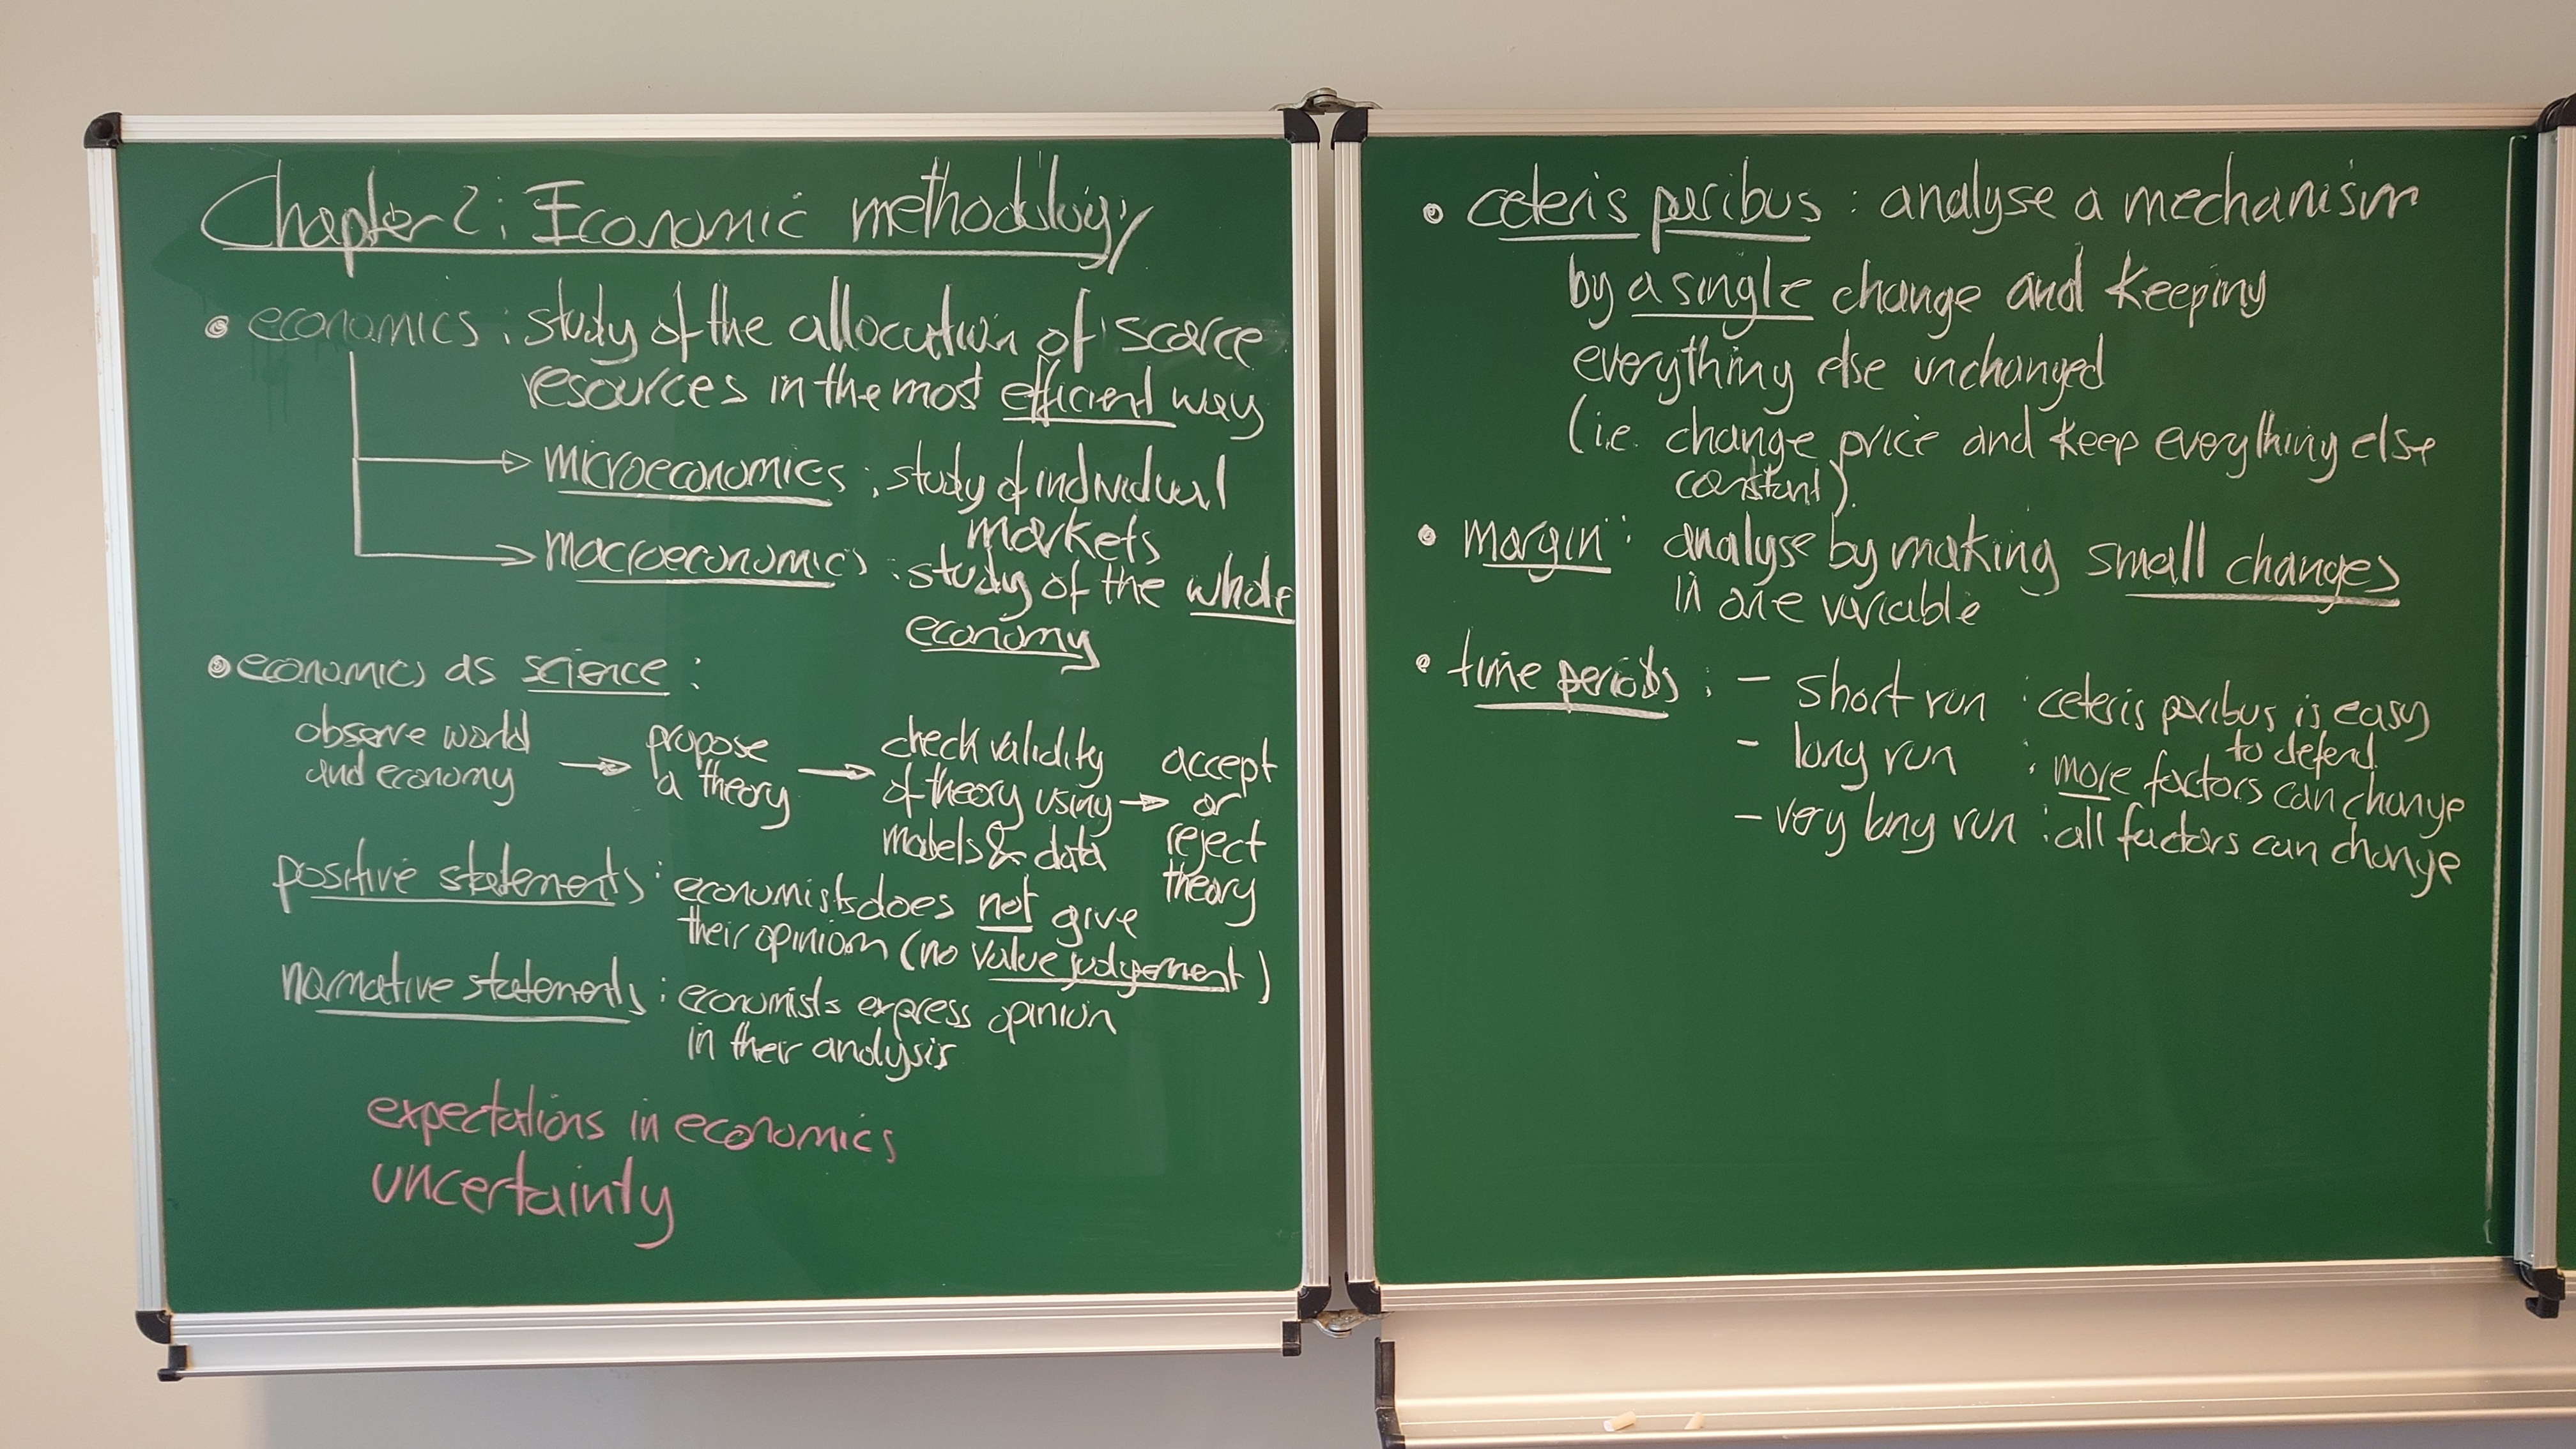 Chapter 2: Economic methodology
• economics : study of the allocation of scarce
resources in the most efficient way
microeconomics : study of individual
markets
macroeconomics : study of the whole
economy
• economics as science :
observe world and economy → propose a theory → check validity of theory using models & data → accept or reject theory
positive statements : economists does not give
their opinion (no value judgement)
normative statements : economists express opinion
in their analysis
expectations in economics
uncertainty
• ceteris paribus : analyse a mechanism
by a single change and keeping
everything else unchanged
(i.e. change price and keep everything else
constant).
• margin : analyse by making small changes
in one variable
• time periods : - short run : ceteris paribus is easy
to defend.
- long run : more factors can change
- very long run : all factors can change